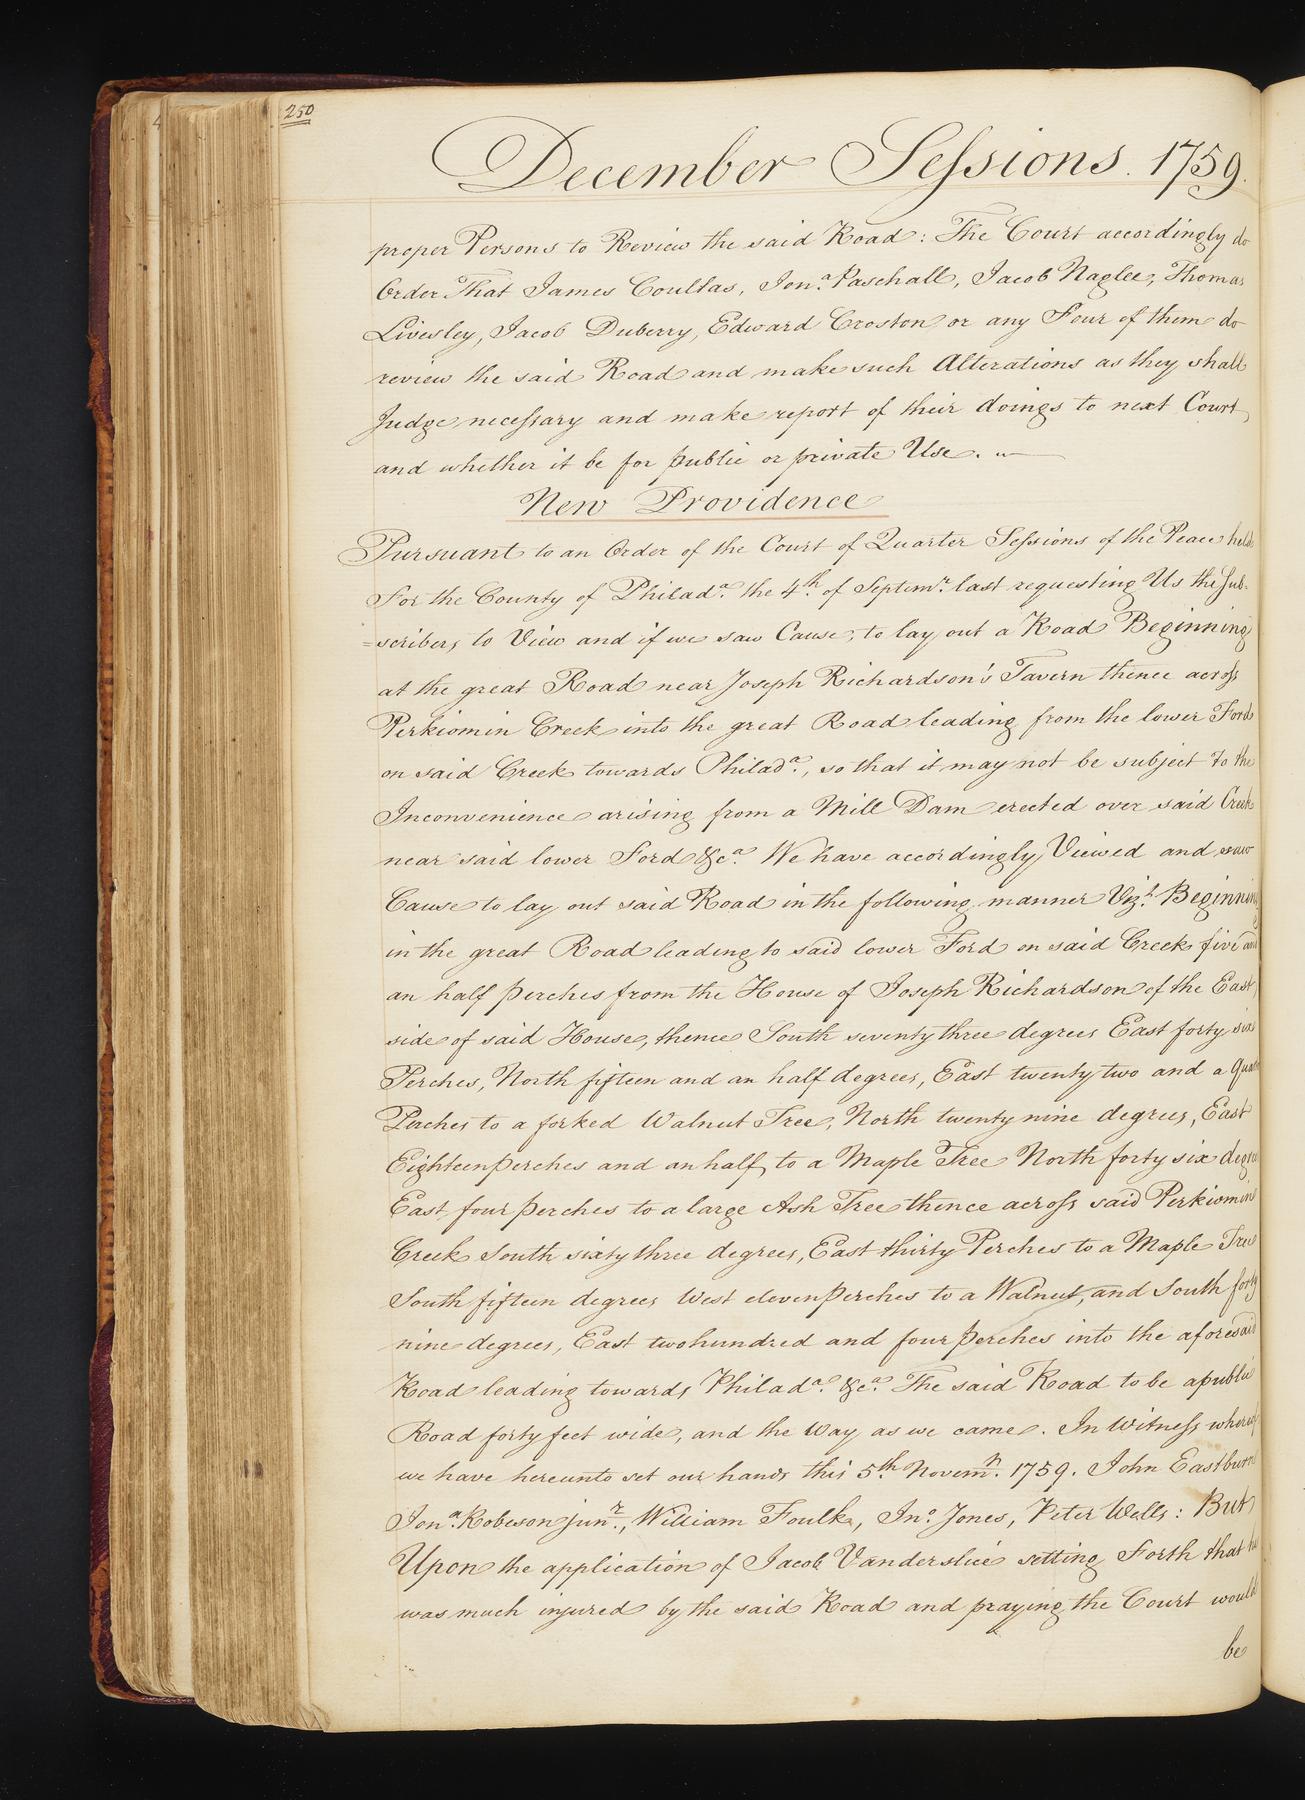 250
December Sessions. 1759.
proper Persons to Review the said Road: The Court accordingly do
Order That James Coultas, Jon.a Paschall, Jacob Naglee, Thomas
Livesley, Jacob Duberry, Edward Croston or any Four of them do
review the said Road and make such Alterations as they shall
Judge necessary and make report of their doings to next Court,
and whether it be for public or private Use.
New Providence
Pursuant to an Order of the Court of Quarter Sessions of the Peace held
For the County of Philad.a the 4.th of Septem.r last requesting Us the Sub-
=scribers to View and if we saw Cause, to lay out a Road Beginning
at the great Road near Joseph Richardson's Tavern thence across
Perkiomin Creek into the great Road leading from the lower Ford
on said Creek towards Philad.a, so that it may not be subject to the
Inconvenience arising from a Mill Dam erected over said Creek
near said lower Ford &c.a We have accordingly Viewed and saw
Cause to lay out said Road in the following manner Viz.t Beginning
in the great Road leading to said lower Ford on said Creek five and
an half perches from the House of Joseph Richardson of the East
side of said House, thence South seventy three degrees East forty six
Perches, North fifteen and an half degrees, East twenty two and a
Perches to a forked Walnut Tree, North twenty nine degrees, East
Eighteen perches and an half, to a Maple Tree North forty six degrees
East four perches to a large Ash Tree thence across said Perkiomin
Creek South sixty three degrees, East thirty Perches to a Maple Tree
South fifteen degrees West eleven perches to a Walnut, and South forty
nine degrees, East two hundred and four perches into the aforesaid
Road leading towards Philad.a &c.a The said Road to be a public
Road forty feet wide, and the way as we came. In Witness whereof
we have hereunto set our hands this 5.th Novem.r 1759. John Eastburn
Jon.a Robeson jun.r, William Foulk, Jn.o Jones, Peter Wells: But
Upon the application of Jacob Vanderslice setting Forth that he
was much injured by the said Road and praying the Court would
be